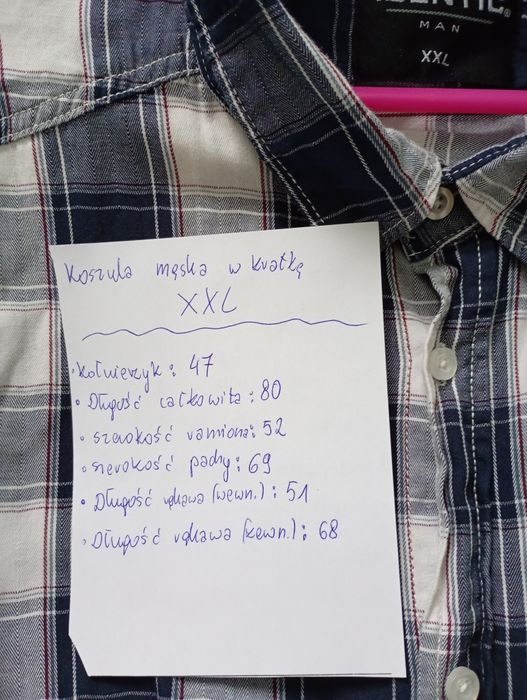 MAN
XXL
Koszula męska w kratkę
XXL
• Kołnierzyk: 47
• Długość całkowita: 80
• szerokość ramiona: 52
• szerokość pachy: 69
• Długość rękawa (wewn.): 51
• Długość rękawa (zewn.): 68